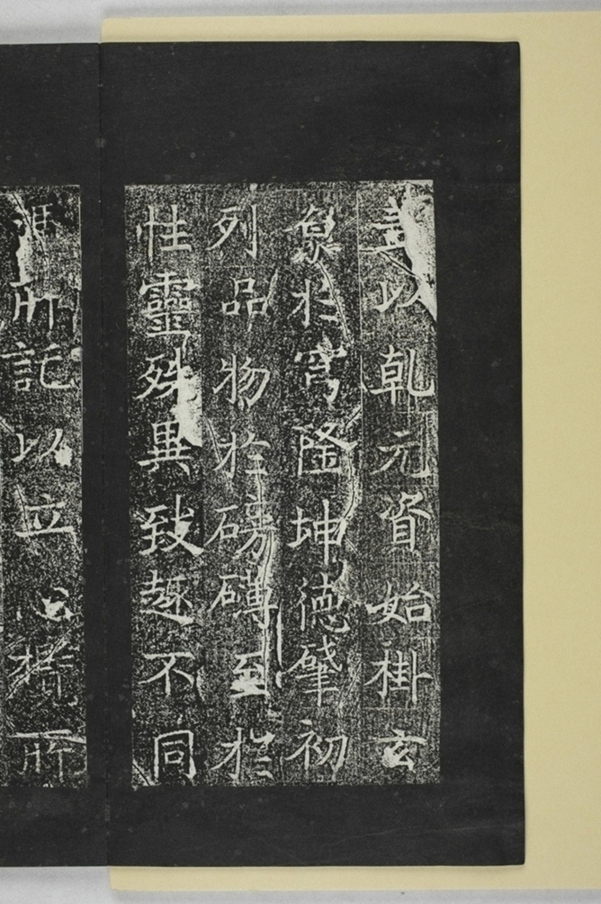 蓋以乹元資始掛玄
象扵穹隆坤德肇初
列品物扵磅礴至扵
性靈殊異致趣不同
所託以立心揩所